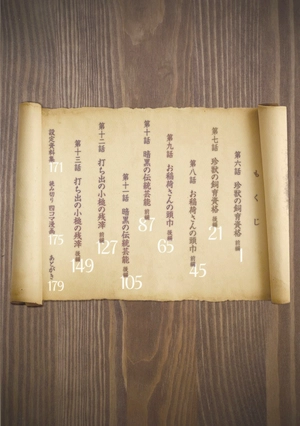 もくじ
第六話 珍獣の飼育資格 前編 1
第七話 珍獣の飼育資格 後編 21
第八話 お稲荷さんの頭巾 前編 45
第九話 お稲荷さんの頭巾 後編 65
第十話 暗黒の伝統芸能 前編 87
第十一話 暗黒の伝統芸能 後編 105
第十二話 打ち出の小槌の残滓 前編 127
第十三話 打ち出の小槌の残滓 後編 149
設定資料集 171
読み切り 四コマ漫画 175
あとがき 179